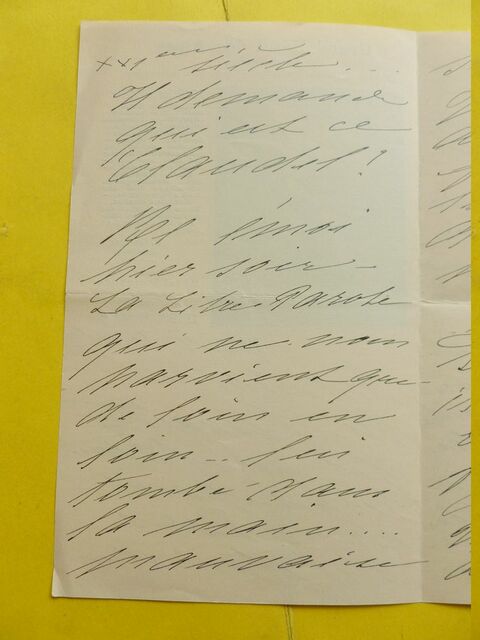 XXIème siècle....
Il demande
qui est ce
Claudel?
émoi
hier soir –
La Libre Parole
qui ne nous
parvient que
de loin en
loin... lui
tombe dans
la main....
mauvaise